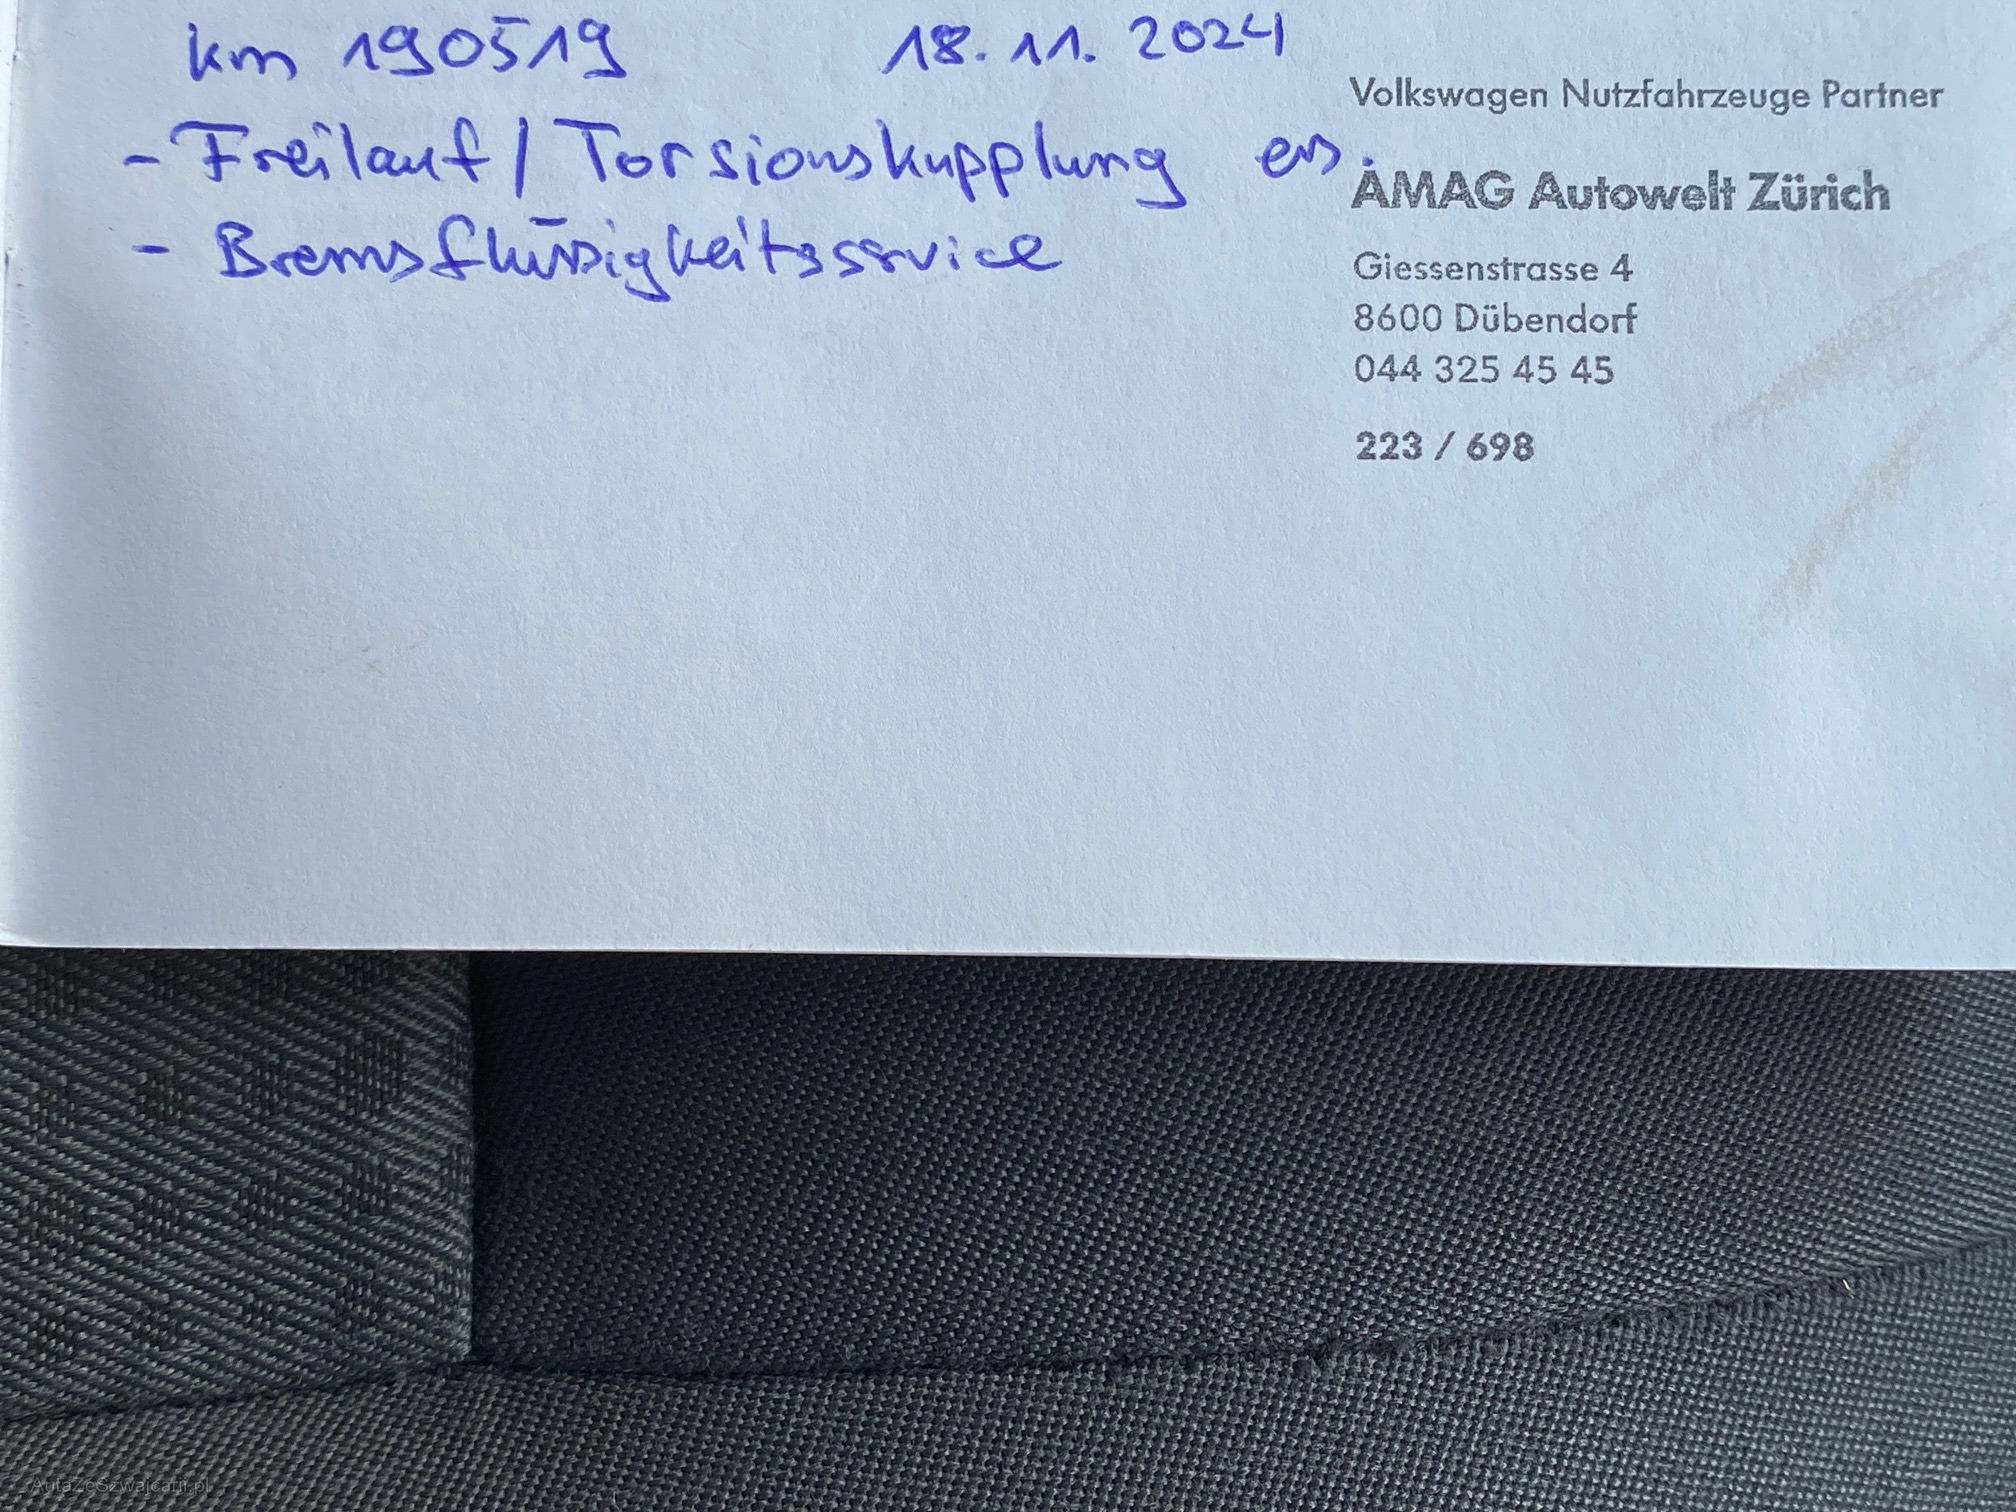 km 190519 18.11.2024
- Freilauf / Torsionskupplung ers.
- Bremsflüssigkeitsservice
Volkswagen Nutzfahrzeuge Partner
AMAG Autowelt Zürich
Giessenstrasse 4
8600 Dübendorf
044 325 45 45
223 / 698
AutaZeSzwajcarii.pl